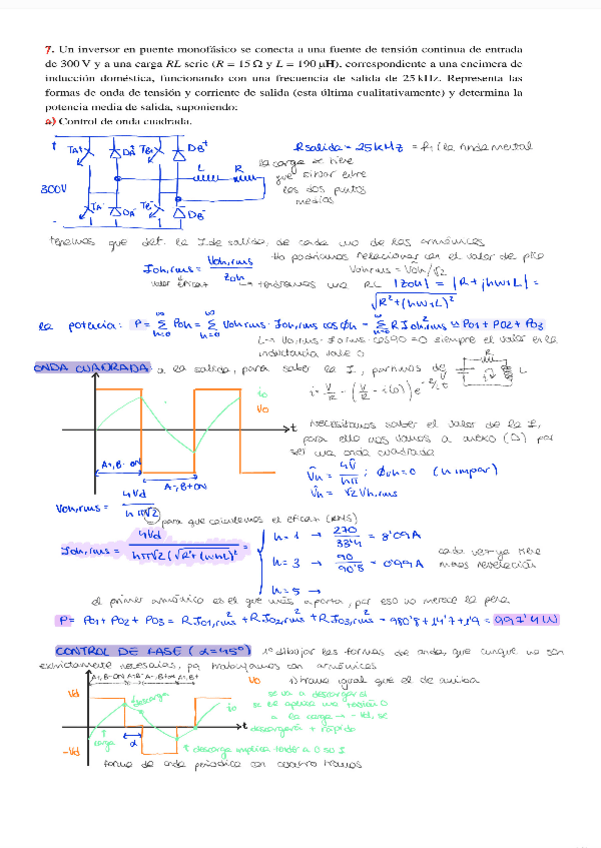 7. Un inversor en puente monofásico se conecta a una fuente de tensión continua de entrada
de 300 V y a una carga RL serie (R = 15 Ω y L = 190 μH), correspondiente a una encimera de
inducción doméstica, funcionando con una frecuencia de salida de 25 kHz. Representa las
formas de onda de tensión y corriente de salida (esta última cualitativamente) y determina la
potencia media de salida, suponiendo:
a) Control de onda cuadrada.
TA+ DA+ TB+ DB+
L R
300V
TA- DA- TB- DB-
Rsalida = 25kHz = f1 (la fundamental
la carga se tiene
que situar entre
los dos puntos
medios
tenemos que det. la I de salida, de cada uno de los armónicos
Ioh,rms = Voh,rms / Zoh
lo podríamos relacionar con el valor de pico
Voh,rms = V̂oh/√2
valor eficaz
tendríamos una RL |Zoh| = |R + jhw1L| =
√R²+(hw1L)²
la potencia: P = Σ Poh = Σ Voh,rms · Ioh,rms cos φh = Σ R Ioh,rms² ≈ Po1 + Po2 + Po3
Vo,rms · Io,rms · cos90 = 0 siempre el valor en la
inductancia vale 0
ONDA CUADRADA: a la salida, para saber la I, partimos de
R
L
io
Vo
t
A+, B- ON
A-, B+ ON
Necesitamos saber el valor de la I,
para ello nos vamos a anexo (D) por
ser una onda cuadrada
V̂h = 4V̂ / hπ ; φvh = 0 (h impar)
V̂h = √2 Vh,rms
Voh,rms = 4Vd / hπ√2
para que calculemos el eficaz (RMS)
Ioh,rms = 4Vd / hπ√2(√R²+(whL)² =
h = 1 → 270 / 33'4 = 8'09A
h = 3 → 90 / 90'8 = 0'99A
h = 5 →
cada vez ya tiene
menos
el primer armónico es el que más aporta, por eso no merece la pena
P = Po1 + Po2 + Po3 = R·Io1,rms² + R·Io2,rms² + R·Io3,rms² = 980'8 + 14'7 + 1'9 = 997'4 W
CONTROL DE FASE (α=45º) 1º dibujar las formas de onda, que aunque no son
estrictamente necesarias, pq trabajamos con armónicos
Vo
Vd
descarga
io
t
-Vd
carga
α
se va a descargar
a la carga → -Vd, se
descargará + rápido
descarga implica tender a 0 su I
forma de onda periódica con cuatro tramos